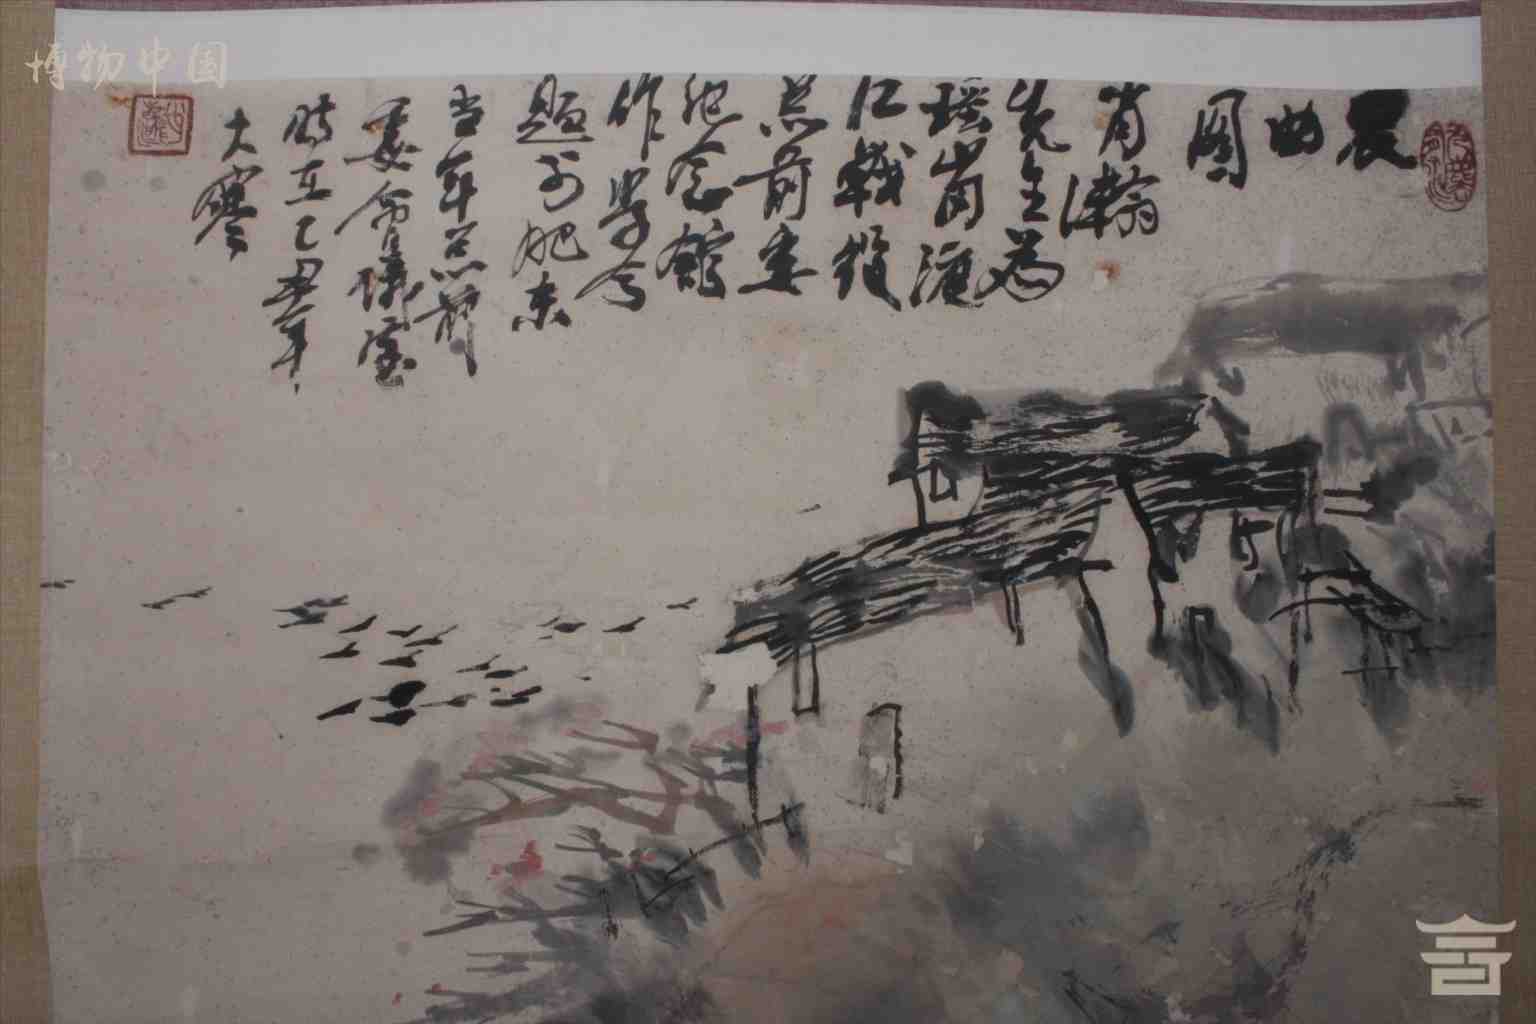 博物中国
晨曲图
肖瀚
先生为
瑶岗渡
江战役
总前委
纪念馆
作
题于肥东
当年总前
委会议室
时在乙丑年
大寒